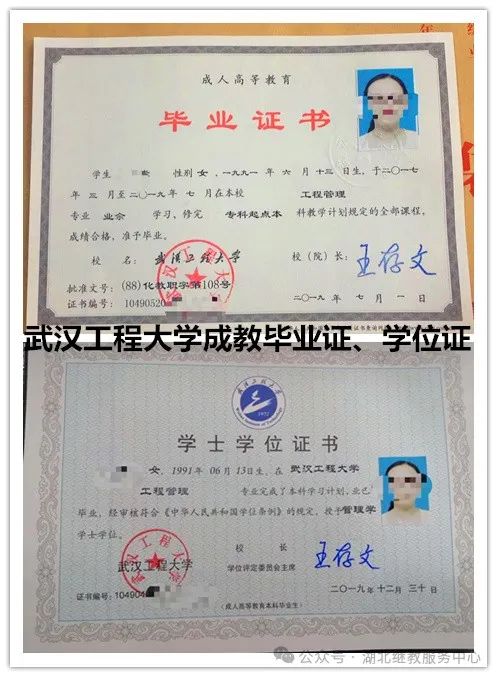 成人高等教育
毕业证书
学生 性别 女，一九九一年 六 月 十三 日生，于二〇一七
年 三 月至二〇一九年 七 月在本校 工程管理
专业 业余 学习，修完 专科起点本 科教学计划规定的全部课程，
成绩合格，准予毕业。
校 名：武汉工程大学 校（院）长：王存文
批准文号：(88)化教职字第108号
证书编号：10490520
二〇一九年 七 月 一 日
武汉工程大学成教毕业证、学位证
武汉工程大学
1972
学士学位证书
女，1991年 06 月 13日生，在 武汉工程大学
工程管理 专业完成了本科学习计划，业已
毕业，经审核符合《中华人民共和国学位条例》的规定，授予 管理学
学士学位。
武汉工程大学
校 长
学位评定委员会主席 王存文
证书编号：104904
二〇一九年十二月 三十 日
（成人高等教育本科毕业生）
公众号 · 湖北继教服务中心